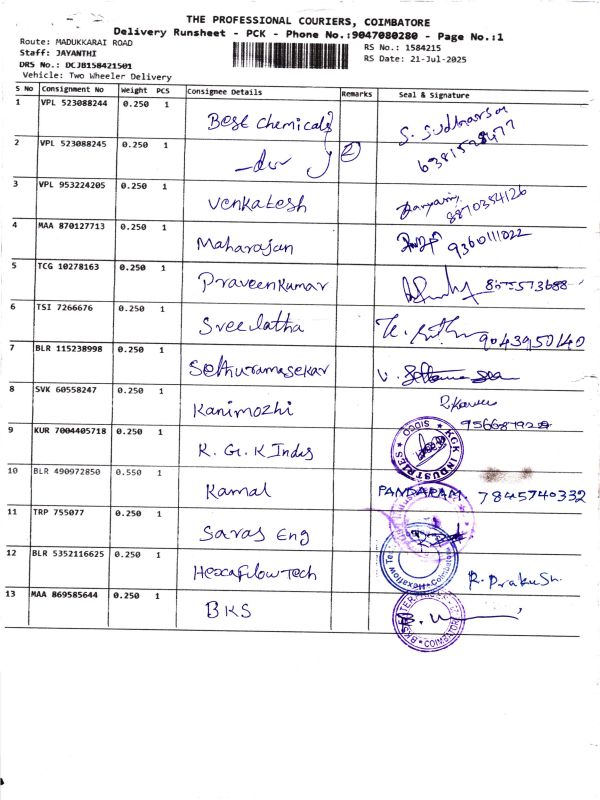 THE PROFESSIONAL COURIERS, COIMBATORE
Delivery Runsheet - PCK - Phone No.:9047080280 - Page No.:1
Route: MADUKKARAI ROAD
Staff: JAYANTHI
DRS No.: DCJB158421501
Vehicle: Two Wheeler Delivery
RS No.: 1584215
RS Date: 21-Jul-2025
S No Consignment No Weight PCS Consignee Details Remarks Seal & Signature
1 VPL 523088244 0.250 1 Best chemicals S. Sudharsan
2 VPL 523088245 0.250 1 -do- 2
3 VPL 953224205 0.250 1 Venkatesh 8870354126
4 MAA 870127713 0.250 1 Maharajan 9360111022
5 TCG 10278163 0.250 1 Praveenkumar
6 TSI 7266676 0.250 1 Sreelatha 9043950140
7 BLR 115238998 0.250 1 Sethuramasekar
8 SVK 60558247 0.250 1 Kanimozhi
9 KUR 7004405718 0.250 1 K. G. K Inds KGK INDUSTRIES SIDCO
10 BLR 490972850 0.550 1 Kamal PANDARAM 7845740332
11 TRP 755077 0.250 1 Saras Eng
12 BLR 5352116625 0.250 1 Hexaflowtech R. Prakash.
13 MAA 869585644 0.250 1 BKS